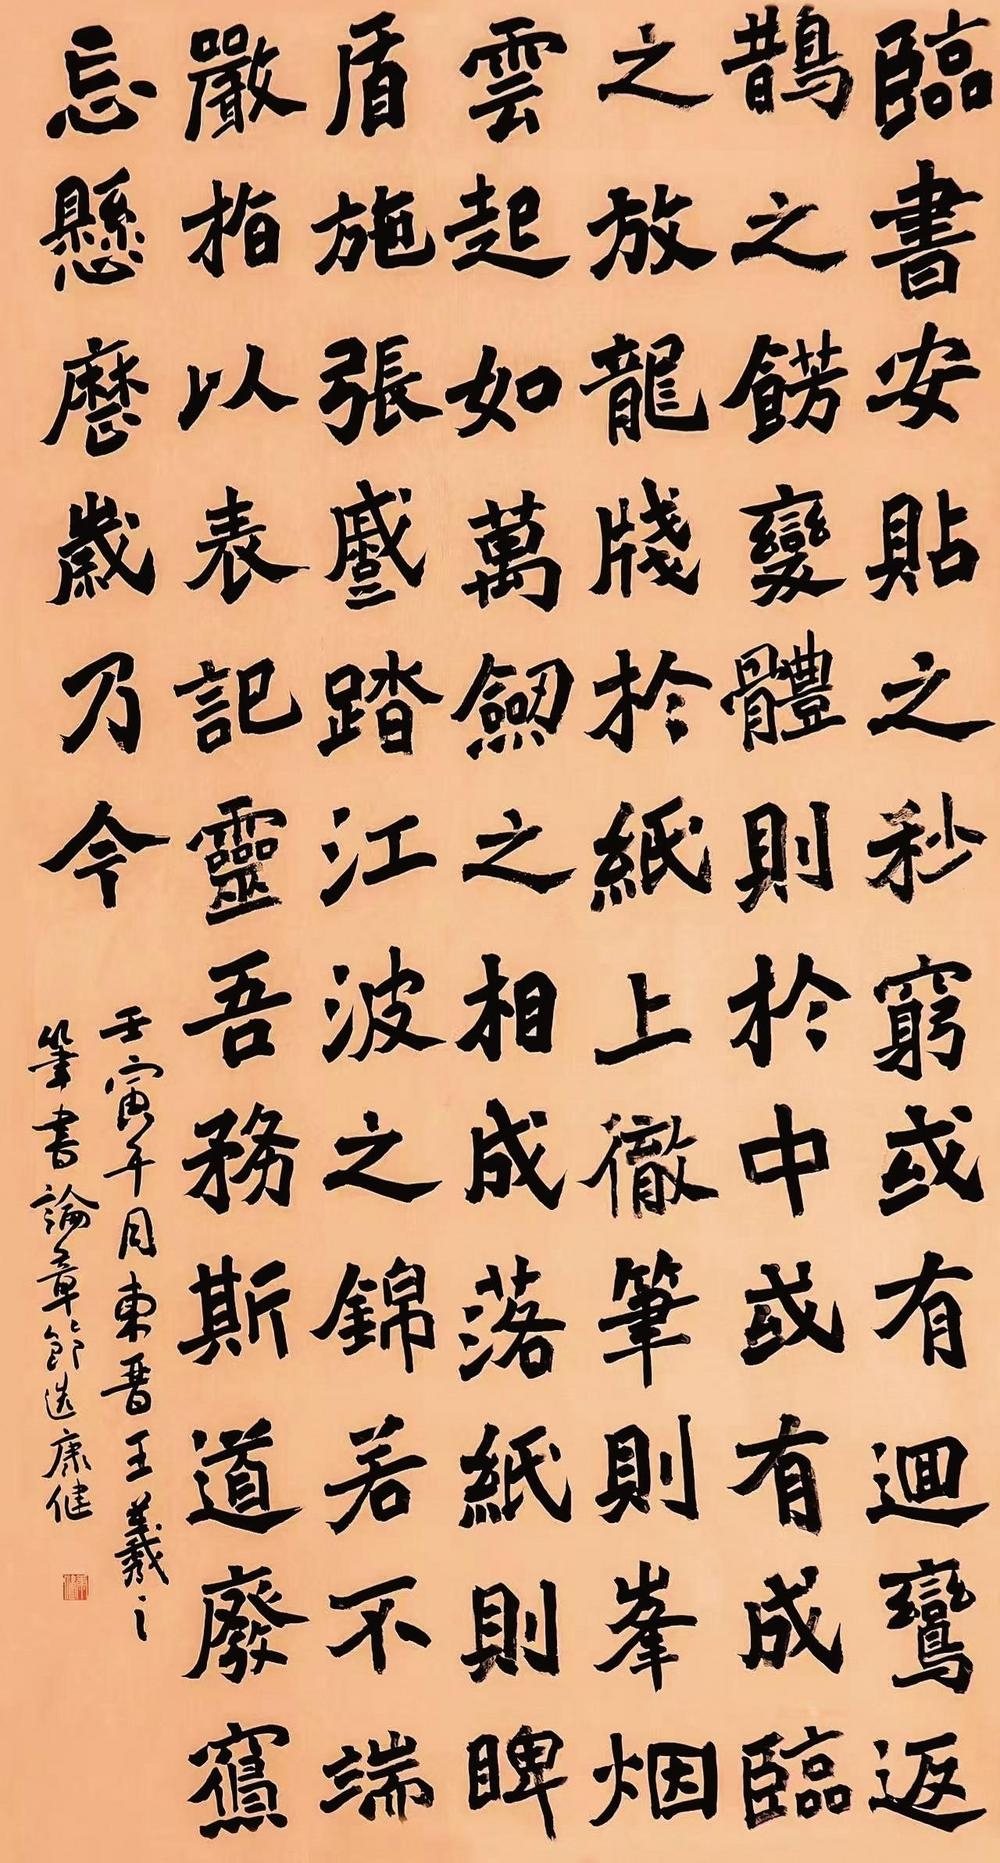 臨書安貼之秒窮或有迴鸞返
鵲之餝變體則於中或有成臨
之放龍牋於紙上徹筆則峯烟
雲起如萬劒之相成落紙則睥
盾施張蹙踏江波之錦若不端
嚴指以表記靈吾務斯道廢寫
忘懸歷歲乃今
壬寅年月東晋王羲之
筆書論章節选康健